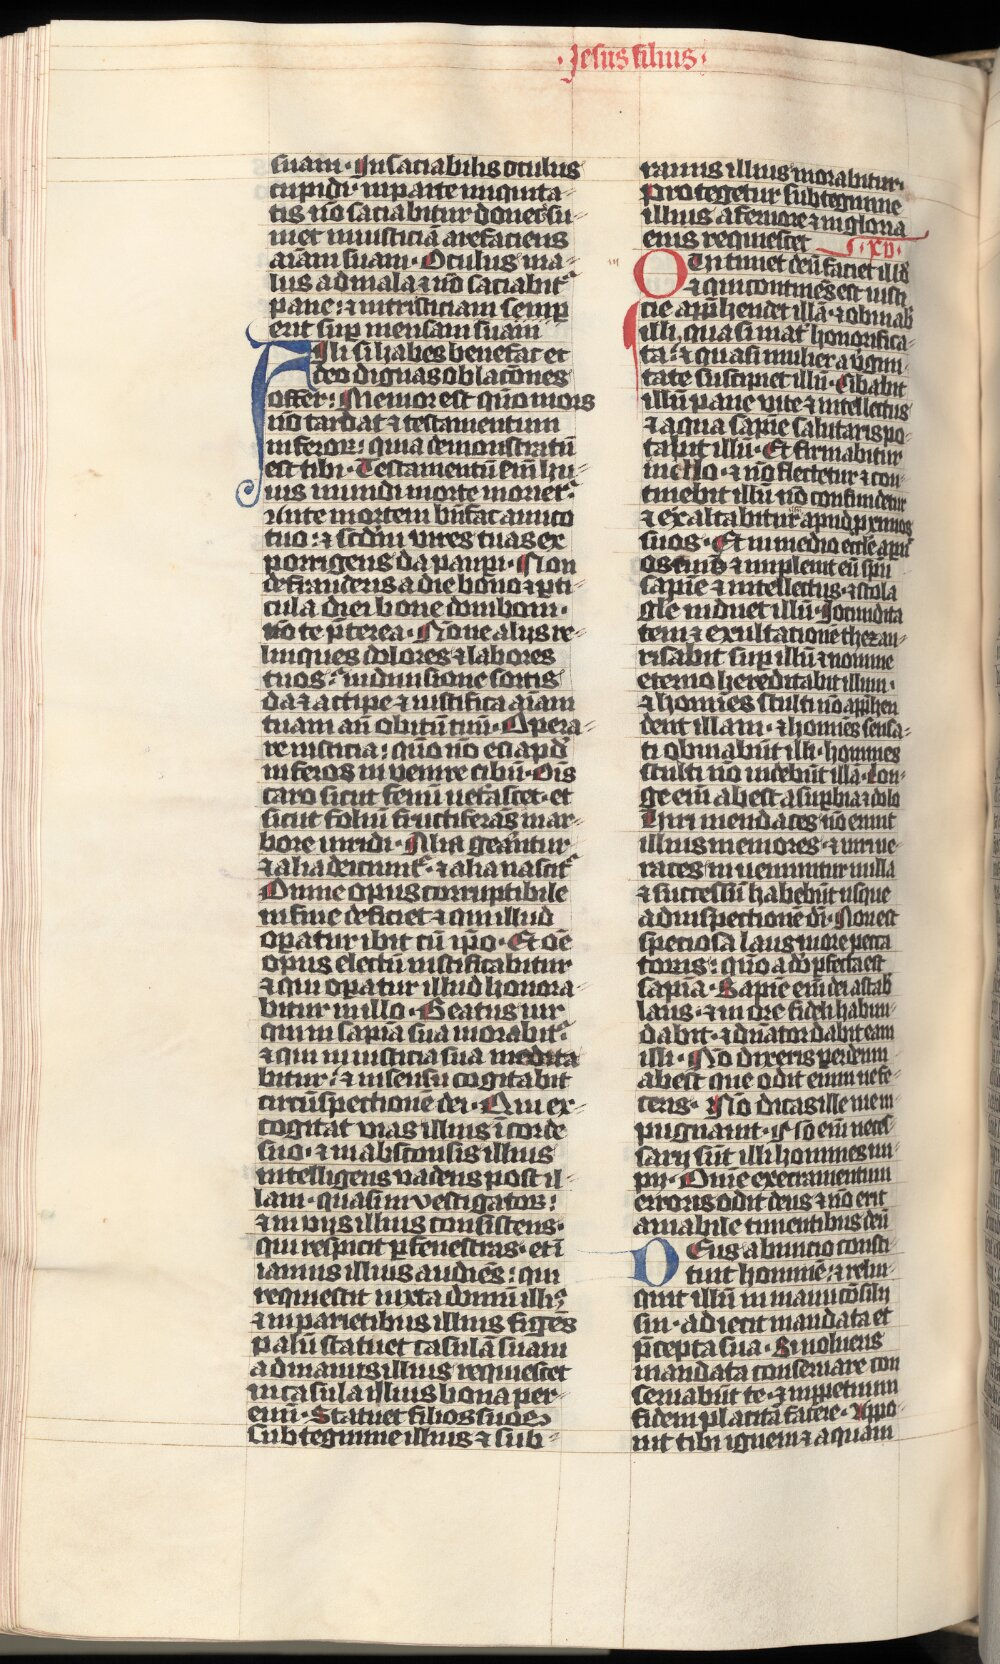 ·Jesus filius·
suam· Insaciabilis oculus
cupidi· in parte iniquita-
tis nō saciabitur donec su-
met iniusticiā arefaciens
aīam suam· Oculus ma-
lus ad mala ⁊ nō saciabit᷑
pane: ⁊ in tristiciam semp
erit sup mensam suam
Fili si habes benefac et
deo dignas oblacōnes
offer: Memor est quō mors
nō tardat ⁊ testamentum
inferor: quia demonstratū
est tibi· Testamentū em̄ hu-
ius mundi morte moriet᷑
Ante mortem bn̄fac amico
tuo: ⁊ scdm̄ vires tuas ex
porrigens da paupi· Non
defrauderis a die bono ⁊ pti
cula diei bone doni boni·
nō te p̄terea· None alijs re-
linques dolores ⁊ labores
tuos: in diuisione sortis
da ⁊ accipe ⁊ iustifica aīam
tuam an̄ obitū tuū· Opera-
re iusticia: quō nō ē apd̄
inferos inuenire cibū· Oīs
caro sicut fenū uetascet· et
sicut foliū fructiferās in ar-
bore uiridi· Alia geāntur
⁊ alia deiciunt᷑· ⁊ alia nascit᷑
Omne opus corruptibile
in fine deficiet ⁊ qui illud
opatur ibit cū ip̄o· Et oē
opus electū iustificabitur
⁊ qui opatur illud honora-
bitur in illo· Beatus uir
qui in sapīa sua morabit᷑
⁊ qui in iusticia sua medita
bitur: ⁊ in sensu cogitabit
circūspectionē dei· Qui ex-
cogitat vias illius ī corde
suo· ⁊ in absconsis illius
intelligens vadens post il-
lam· quasi inuestigator:
⁊ in vijs illius consistens·
qui respicit p fenestras· et ī
ianuis illius audiēs: qui
requiescit iuxta domū illi9
⁊ in parietibus illius figēs
palū statuet casulā suam
ad manus illius requiescet
in casula illius bona per
euū· Statuet filios suos
sub tegmine illius ⁊ sub-
ramis illius morabitur·
Protegetur sub tegmine
illius a feruore ⁊ in gloria
eius requiescet
·xv·
Qui timet deū faciet illd̄
⁊ qui continēs est iusti
cie app̄hendet illā· ⁊ obuiab
illi quasi mat᷑ honorifica-
ta: ⁊ quasi mulier a v̄gini-
tate suscipiet illū· Cibabit
illū pane vite ⁊ intellectus
⁊ aqua sapīe salutaris po-
tabit illū· Et firmabitur
in illo· ⁊ nō flectetur ⁊ con-
tinebit illū nō confundetur
⁊ exaltabitur apud pximos
suos· Et in medio ecclīe apīt
os eius ⁊ implenit eū spū
sapīe ⁊ intellectus· ⁊ stola
glē induet illū· Jocundita
tem ⁊ exultationē thezau-
risabit sup illū ⁊ nomine
eterno hereditabit illum·
⁊ homīes stulti nō app̄hen
dent illam· ⁊ homīes sensa-
ti obuiabūt illi· homines
stulti nō uidebūt illā· Lon-
ge em̄ abest a supbia ⁊ dolo
Viri mendaces nō erunt
illius memores· ⁊ uiri ue-
races inueniuntur in illa
⁊ successū habebūt usque
ad inspectionē dī· Non est
speciosa laus in ore pecca
toris: quō a dō pfecta est
sapīa· Sapīe em̄ dei astab
laus· ⁊ in ore fideli habun-
dabit· ⁊ dn̄ator dabit eam
illi· Nō dixeris per deum
abest que odit enim ne fe-
ceris· Nō dicas ille me im-
pugnauit· nō em̄ neces-
sarij sūt illi homines im-
pij· Omē execramentum
erroris odit deus ⁊ nō erit
amabile timentibus deū
Deus ab inicio consti-
tuit hominē: ⁊ reliq-
quit illū in manu cōsilij
sui· adiecit mandata et
p̄cepta sua· Si uolueris
mandata conseruare con
seruabūt te· ⁊ in ppetuum
fidem placitā facere· Appo-
uit tibi ignem ⁊ aquam